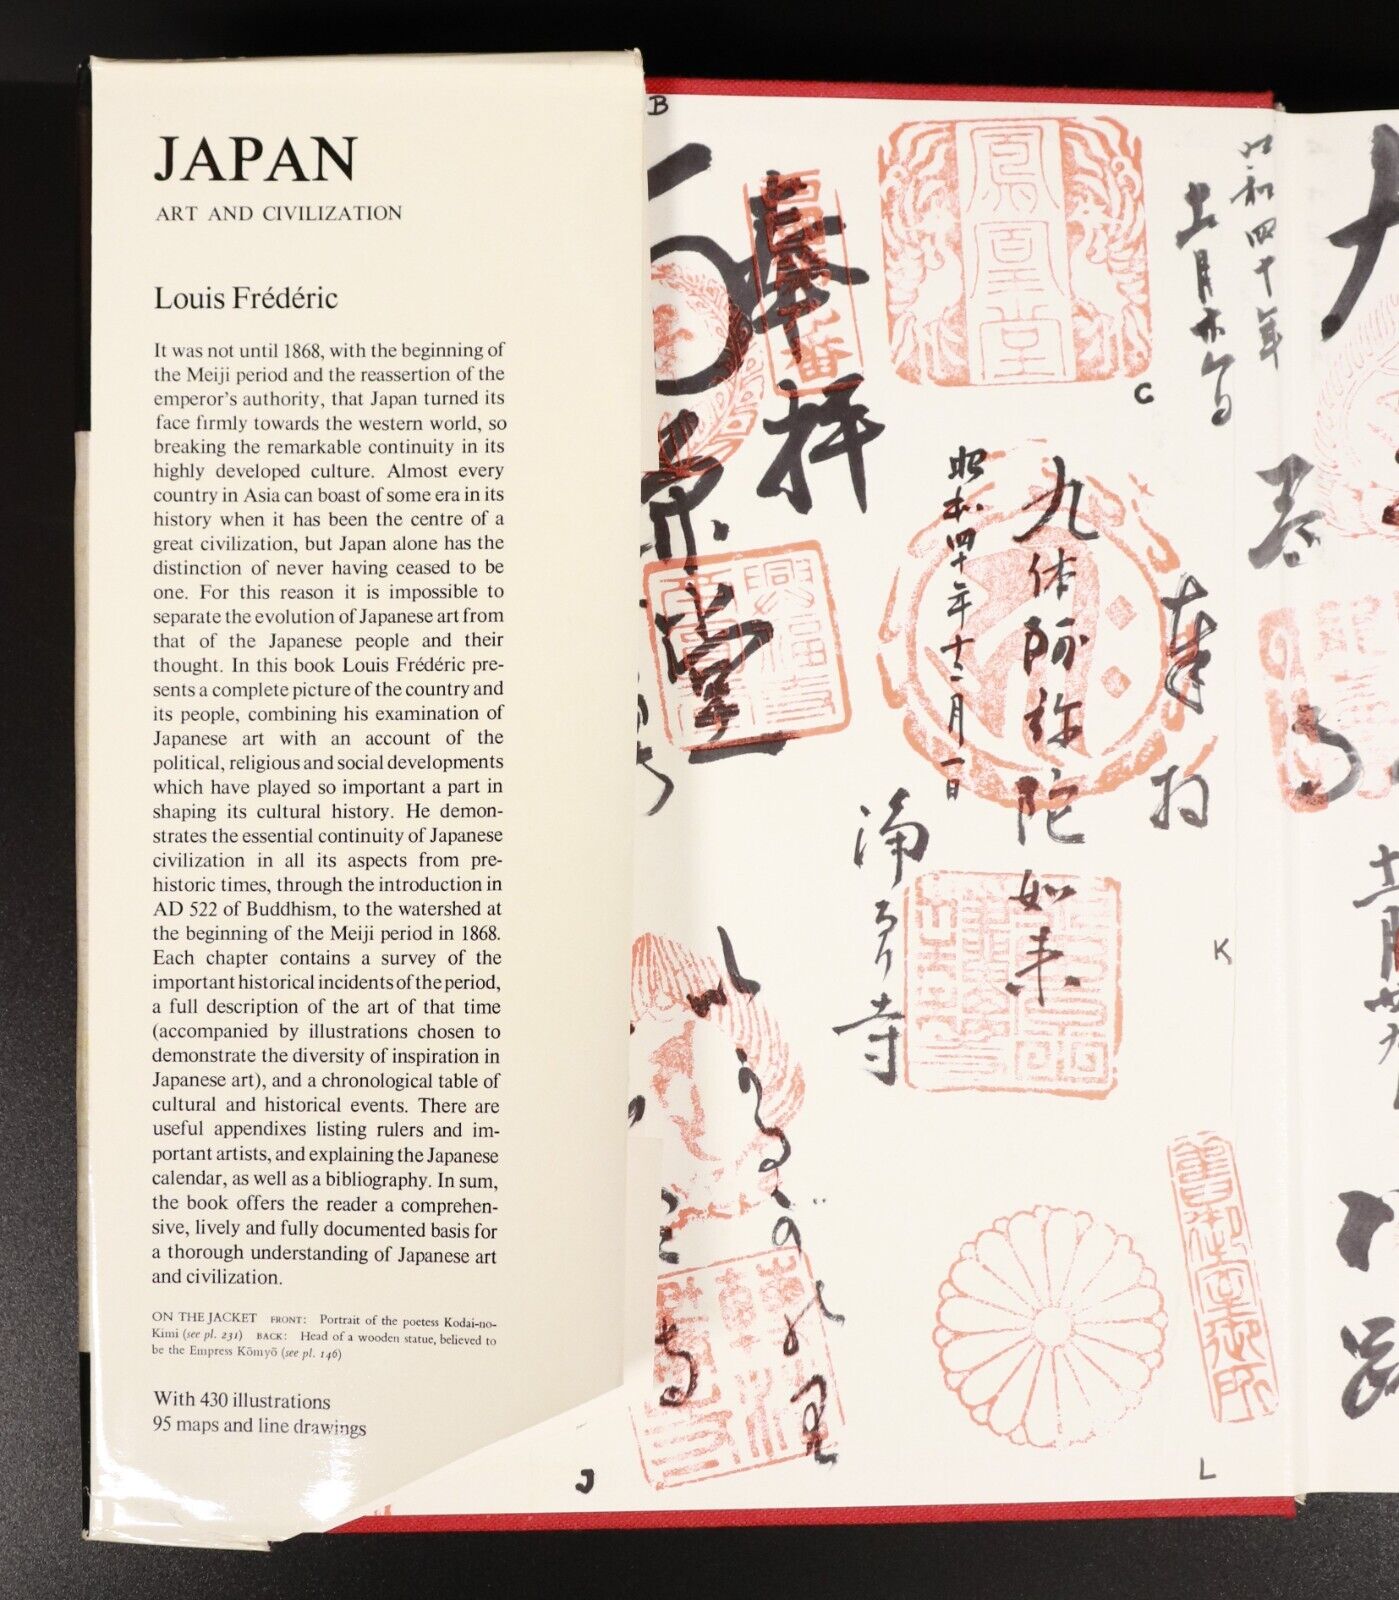 JAPAN
ART AND CIVILIZATION
Louis Frédéric
It was not until 1868, with the beginning of
the Meiji period and the reassertion of the
emperor's authority, that Japan turned its
face firmly towards the western world, so
breaking the remarkable continuity in its
highly developed culture. Almost every
country in Asia can boast of some era in its
history when it has been the centre of a
great civilization, but Japan alone has the
distinction of never having ceased to be
one. For this reason it is impossible to
separate the evolution of Japanese art from
that of the Japanese people and their
thought. In this book Louis Frédéric pre-
sents a complete picture of the country and
its people, combining his examination of
Japanese art with an account of the
political, religious and social developments
which have played so important a part in
shaping its cultural history. He demon-
strates the essential continuity of Japanese
civilization in all its aspects from pre-
historic times, through the introduction in
AD 522 of Buddhism, to the watershed at
the beginning of the Meiji period in 1868.
Each chapter contains a survey of the
important historical incidents of the period,
a full description of the art of that time
(accompanied by illustrations chosen to
demonstrate the diversity of inspiration in
Japanese art), and a chronological table of
cultural and historical events. There are
useful appendixes listing rulers and im-
portant artists, and explaining the Japanese
calendar, as well as a bibliography. In sum,
the book offers the reader a comprehen-
sive, lively and fully documented basis for
a thorough understanding of Japanese art
and civilization.
ON THE JACKET FRONT: Portrait of the poetess Kodai-no-
Kimi (see pl. 231) BACK: Head of a wooden statue, believed to
be the Empress Kōmyō (see pl. 146)
With 430 illustrations
95 maps and line drawings
B
昭和四十年
鳳凰堂
奉拝
C
奉拝
九体阿弥陀如来
昭和四十年十二月一日
浄瑠璃寺
興福寺
堂
K
J
L